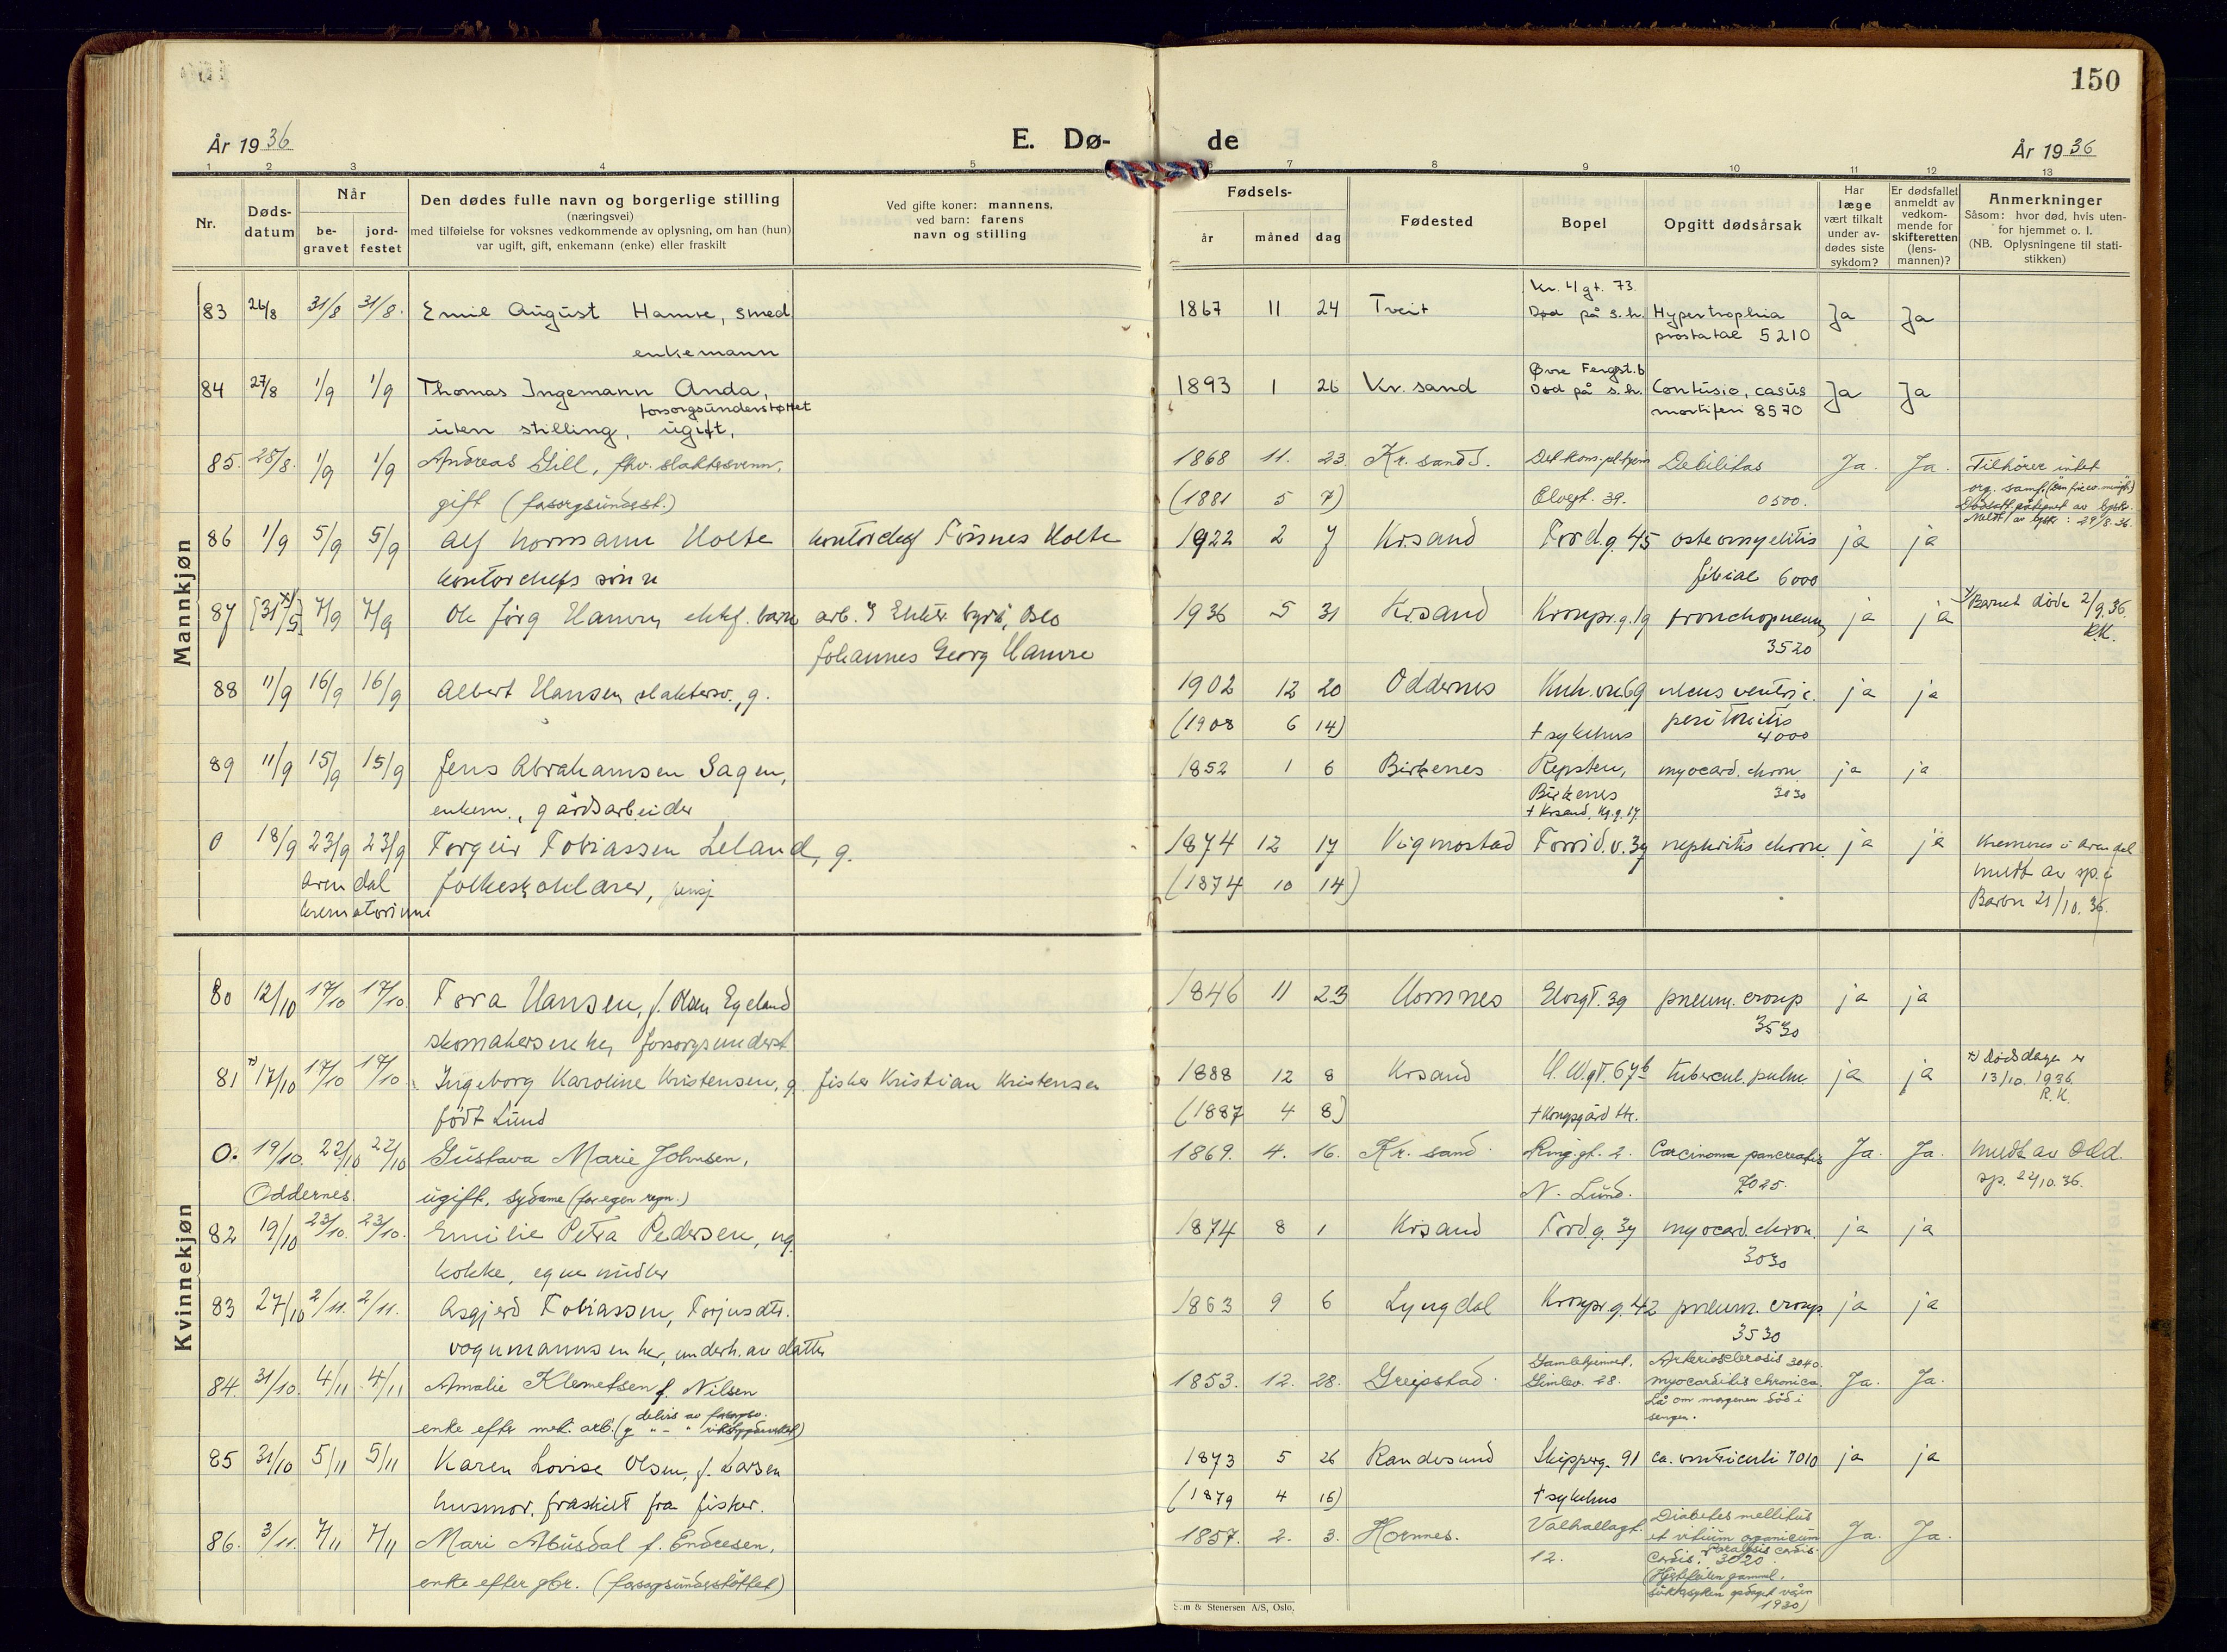 150
År 1936
E. Dø-
de
År 1936
1 2 3 4 5 6 7 8 9 10 11 12 13
Nr.
Døds-
datum
Når
be-
gravet
jord-
festet
Den dødes fulle navn og borgerlige stilling
(næringsvei)
med tilføielse for voksnes vedkommende av oplysning, om han (hun)
var ugift, gift, enkemann (enke) eller fraskilt
Ved gifte koner: mannens,
ved barn: farens
navn og stilling
Fødsels-
år måned dag
Fødested
Bopel
Opgitt dødsårsak
Har
læge
vært tilkalt
under av-
dødes siste
sykdom?
Er dødsfallet
anmeldt av
vedkom-
mende for
skifteretten
(lens-
mannen)?
Anmerkninger
Såsom: hvor død, hvis uten-
for hjemmet o. l.
(NB. Oplysningene til stati-
stikken)
Mannkjøn
Kr. 4 gt. 73
83 26/8 31/8 31/8. Emil August Hamre, smed 1867 11 24 Tveit Død på s.h. Hypertrophia Ja Ja
enkemann prostatae 5210
84 27/8 1/9 1/9 Thomas Ingemann Anda, 1893 1 26 Kr. sand Død på s.h. Contusio, casus Ja Ja
forsorgsunderstøttet mortiferi 8570
uten stilling, ugift,
85. 28/8. 1/9 1/9 Andreas Gill, fhv. slaktersvenn, 1868 11. 23. Kr. sand S. Debilitas Ja. Ja. Tilhører intet
gift (forsorgsunderst.) (1881 5 7) Elvegt. 39. 0500.
86 1/9 5/9 5/9 Alf Normann Holte kontorchef Tønnes Holte 1922 2 7 Krsand Tord.g. 45 osteomyelitis ja ja
kontorchefs sønn tibiae 6000
87 [31/5] 7/9 7/9 Ole Jörg Hamre, ektef. barn arb. Oslo 1936 5 31 Krsand Kronpr.g. 19 bronchopneum. 3520 ja ja x) Barnet døde 2/9.36. R.K.
Johannes Georg Hamre
88 11/9 16/9 16/9 Albert Hansen, slaktersv., g. 1902 12 20 Oddernes ulcus ventric. ja ja
(1908 6 14) † sykehus peritonitis 4000
89 11/9 15/9 15/9 Jens Abrahamsen Sagen, 1852 1 6 Birkenes Repsten, myocard. chron. ja ja
enkem., gårdsarbeider Birkenes 3030
† Krsand, Kg.g. 17.
0 18/9 23/9 23/9 Torgeir Tobiassen Leland, g. 1874 12 17 Vigmostad Tordd.v. 37 nephritis chron. ja ja Kremeres i Arendal
Arendal folkeskolelærer, pensj. (1874 10 14) meldt av sp. i
krematorium Barbu 21/10.36.
Kvinnekjøn
80 12/10 17/10 17/10 Tora Hansen, f. Olsen Egeland 1846 11 23 Hornnes Elvegt. 39 pneum. croup ja ja
skomakerenke, forsorgsunderst. 3530
81 x) 17/10 17/10 17/10. Ingeborg Karoline Kristensen, g. fisker Kristian Kristensen 1888 12 8 Krsand tubercul. pulm. ja ja x) Dødsdagen er
født Lund (1887 4 8) † Kongsgård 13/10. 1936. R.K.
0. 19/10. 22/10 22/10 Gustava Marie Johnsen, 1869. 4. 16. Kr. sand. Ring.gt. 2. Carcinoma pancreatis Ja. Ja. meldt av Odd.
Oddernes. ugift, sydame (for egen regn.) N. Lund. 7025. sp. 22/10.36.
82 19/10 23/10. 23/10. Emilie Petra Pedersen, ug. 1874 8 1 Krsand Tord.g. 37 myocard. chron. ja ja
kokke, egne midler 3030
83 27/10 2/11. 2/11. Asgjerd Tobiassen, Torjusdtr. 1863 9 6 Lyngdal Kronpr.g. 42 pneum. croup. ja ja
vognmannsenke, underh. av datter 3530
84. 31/10. 4/11 4/11 Amalie Klemetsen f. Nilsen 1853. 12. 28. Greipstad. Gamlehjemmet, Arteriosclerosis 3040. Ja. Ja.
enke efter met. arb. Gimlev. 28. myocarditis chronica.
Lå om morgenen död i
sengen.
85 31/10 5/11 5/11 Karen Lovise Olsen, f. Larsen 1873 5 26 Randesund Skipperg. 91 ca. ventriculi 7010 ja ja
husmor, fraskilt fra fisker. (1879 4 16) † sykehus
86. 3/11. 7/11 7/11 Mari Abusdal f. Endresen, 1857. 2. 3. Hornnes. Valhallagt. Diabetes mellitus Ja. Ja.
enke efter gbr. (forsorgsunderstöttet) 12. et vitium organicum
cordis. Paralysis cordis. 3020.
(Hjertefeilen gammel,
1930)
S.m & Stenersen A/S, Oslo.